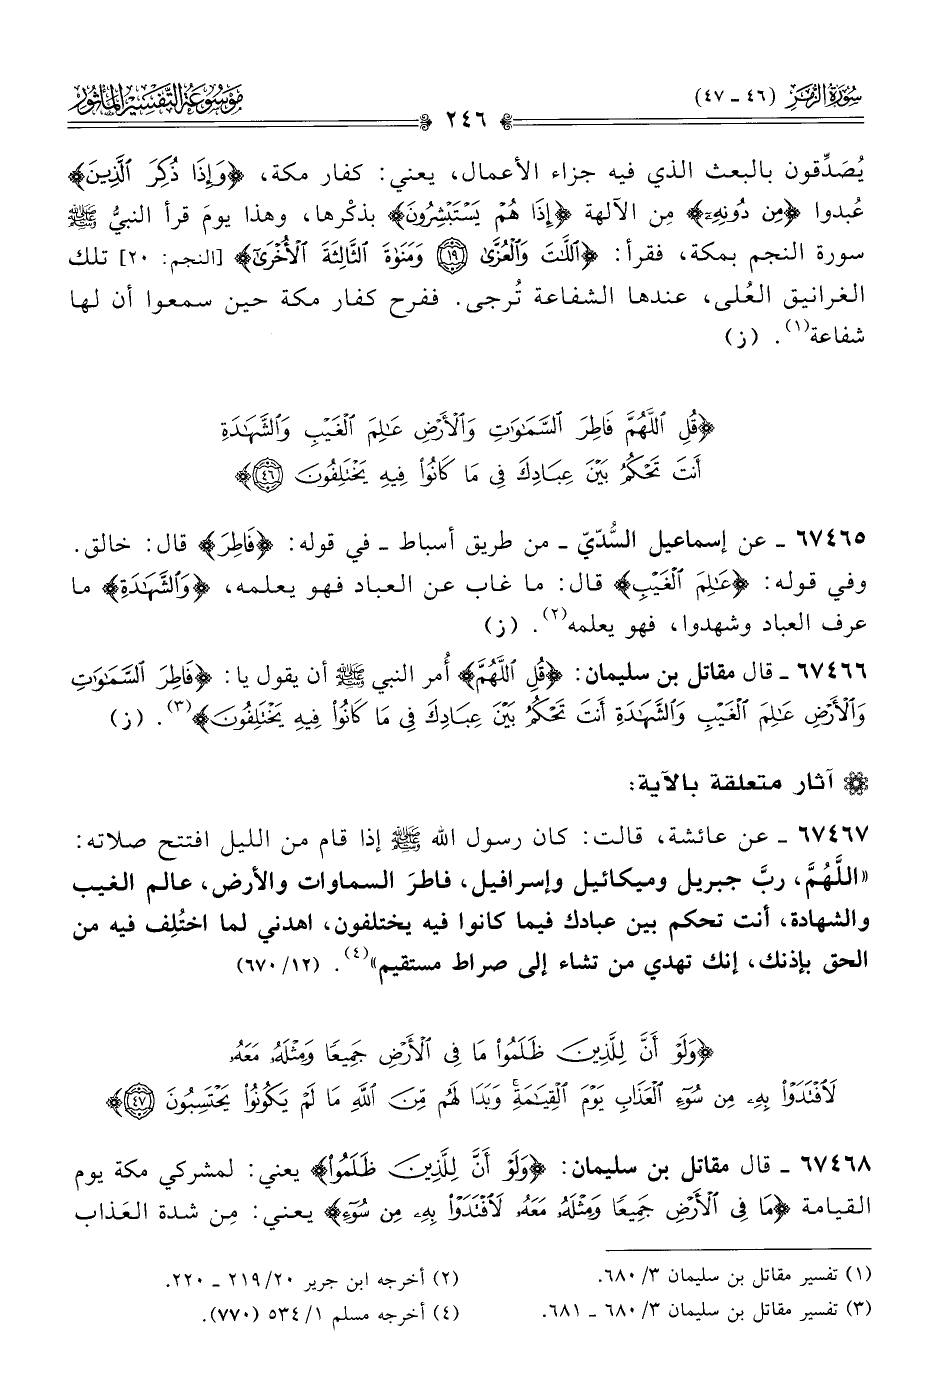 سُورَةُ الزُّمَرِ (٤٦ - ٤٧)
٢٤٦
مَوْسُوعَةُ التَّفْسِيرِ المَأْثُورِ
يُصَدِّقون بالبعث الذي فيه جزاء الأعمال، يعني: كفار مكة، ﴿وَإِذَا ذُكِرَ ٱلَّذِينَ﴾
عُبدوا ﴿مِن دُونِهِۦٓ﴾ مِن الآلهة ﴿إِذَا هُمْ يَسْتَبْشِرُونَ﴾ بذكْرها، وهذا يومَ قرأ النبيُّ ﷺ
سورة النجم بمكة، فقرأ: ﴿ٱللَّٰتَ وَٱلْعُزَّىٰ ١٩ وَمَنَوٰةَ ٱلثَّالِثَةَ ٱلْأُخْرَىٰٓ﴾ [النجم: ٢٠] تلك
الغرانيق العُلى، عندها الشفاعة تُرجى. ففرح كفار مكة حين سمعوا أن لها
شفاعة(١). (ز)
﴿قُلِ ٱللَّهُمَّ فَاطِرَ ٱلسَّمَٰوَٰتِ وَٱلْأَرْضِ عَٰلِمَ ٱلْغَيْبِ وَٱلشَّهَٰدَةِ
أَنتَ تَحْكُمُ بَيْنَ عِبَادِكَ فِي مَا كَانُوا۟ فِيهِ يَخْتَلِفُونَ ٤٦﴾
٦٧٤٦٥ - عن إسماعيل السُّدّيّ - من طريق أسباط - في قوله: ﴿فَاطِرَ﴾ قال: خالق.
وفي قوله: ﴿عَٰلِمَ ٱلْغَيْبِ﴾ قال: ما غاب عن العباد فهو يعلمه، ﴿وَٱلشَّهَٰدَةِ﴾ ما
عرف العباد وشهدوا، فهو يعلمه(٢). (ز)
٦٧٤٦٦ - قال مقاتل بن سليمان: ﴿قُلِ ٱللَّهُمَّ﴾ أُمر النبي ﷺ أن يقول يا: ﴿فَاطِرَ ٱلسَّمَٰوَٰتِ
وَٱلْأَرْضِ عَٰلِمَ ٱلْغَيْبِ وَٱلشَّهَٰدَةِ أَنتَ تَحْكُمُ بَيْنَ عِبَادِكَ فِي مَا كَانُوا۟ فِيهِ يَخْتَلِفُونَ﴾(٣). (ز)
آثار متعلقة بالآية:
٦٧٤٦٧ - عن عائشة، قالت: كان رسول الله ﷺ إذا قام من الليل افتتح صلاته:
«اللَّهُمَّ، ربَّ جبريل وميكائيل وإسرافيل، فاطرَ السماوات والأرض، عالم الغيب
والشهادة، أنت تحكم بين عبادك فيما كانوا فيه يختلفون، اهدني لما اختُلِف فيه من
الحق بإذنك، إنك تهدي من تشاء إلى صراط مستقيم»(٤). (١٢/ ٦٧٠)
﴿وَلَوْ أَنَّ لِلَّذِينَ ظَلَمُوا۟ مَا فِي ٱلْأَرْضِ جَمِيعًا وَمِثْلَهُۥ مَعَهُۥ
لَٱفْتَدَوْا۟ بِهِۦ مِن سُوٓءِ ٱلْعَذَابِ يَوْمَ ٱلْقِيَٰمَةِ ۚ وَبَدَا لَهُم مِّنَ ٱللَّهِ مَا لَمْ يَكُونُوا۟ يَحْتَسِبُونَ ٤٧﴾
٦٧٤٦٨ - قال مقاتل بن سليمان: ﴿وَلَوْ أَنَّ لِلَّذِينَ ظَلَمُوا۟﴾ يعني: لمشركي مكة يوم
القيامة ﴿مَا فِي ٱلْأَرْضِ جَمِيعًا وَمِثْلَهُۥ مَعَهُۥ لَٱفْتَدَوْا۟ بِهِۦ مِن سُوٓءِ﴾ يعني: مِن شدة العَذاب
(١) تفسير مقاتل بن سليمان ٣/ ٦٨٠.
(٢) أخرجه ابن جرير ٢٠/ ٢١٩ - ٢٢٠.
(٣) تفسير مقاتل بن سليمان ٣/ ٦٨٠ - ٦٨١.
(٤) أخرجه مسلم ١/ ٥٣٤ (٧٧٠).